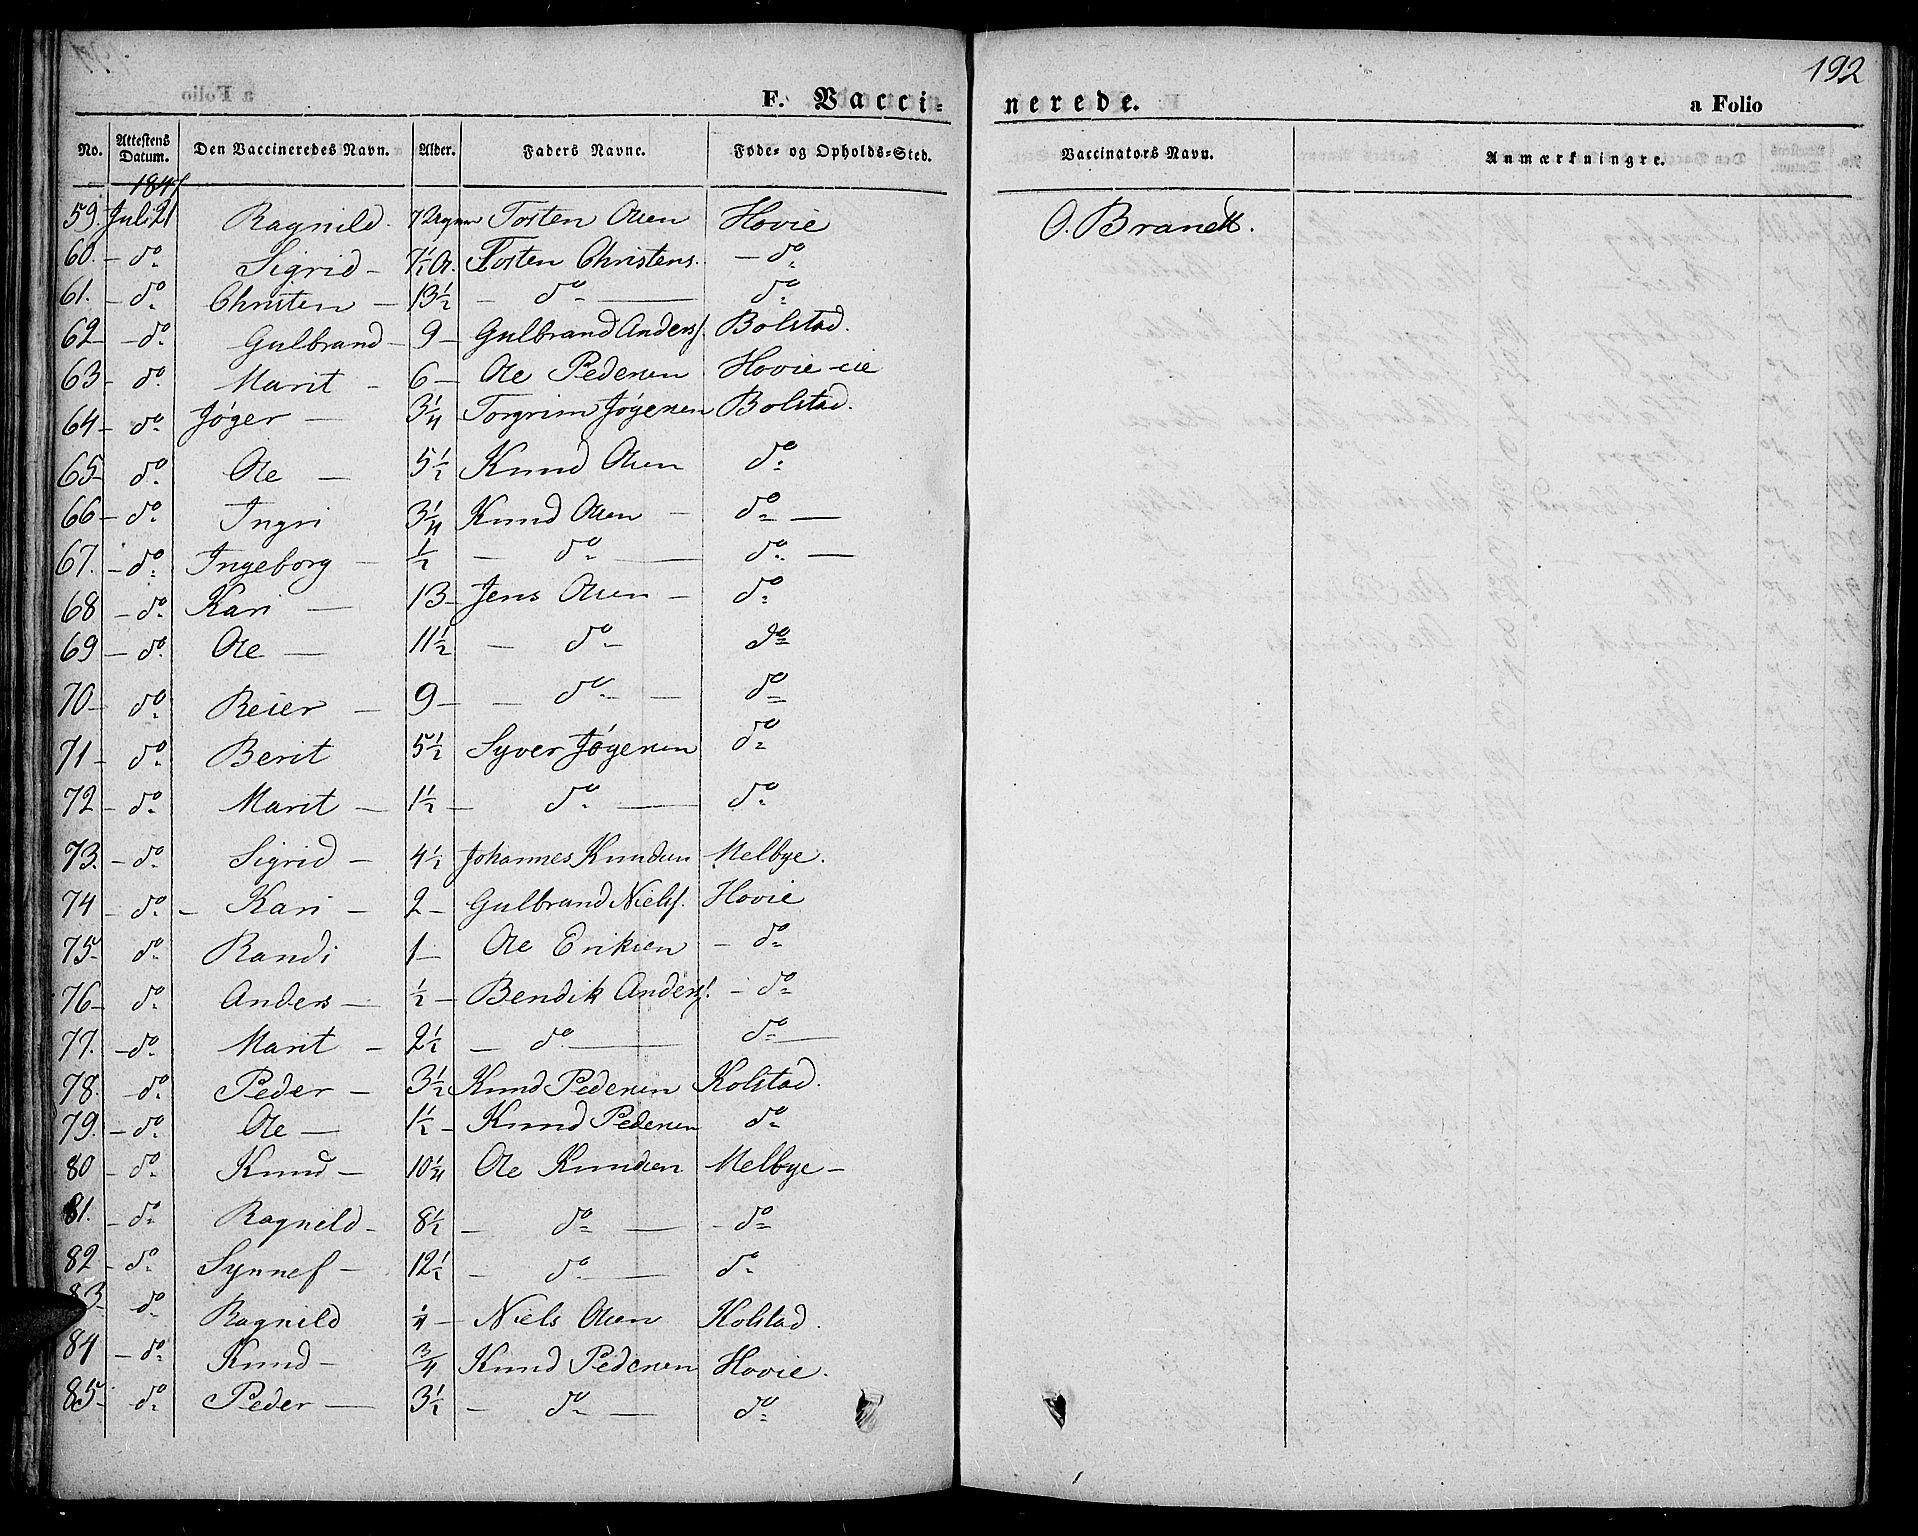 192
F. Vacci- nerede. a Folio
No. Attestens Datum. Den Vaccineredes Navn. Alder. Faders Navne. Føde- og Opholds-Sted. Vaccinators Navn. Anmærkningre.
1847
59. Juli 21 Ragnild. 7 Torsten Olsen Hovie O. Brandt.
60. - do Sigrid - 7½ A. Tosten Christens. - do
61. - do Christen - 13½ - do - do
62 - do Gulbrand - 9 - Gulbrand Anders. Bolstad.
63 - do. Marit - 6 - Ole Pedersen Hovie-eie
64 - do Jøger - 3¼ Torgrim Jøgersen Bolstad.
65 - do Ole - 5½ Knud Olsen do
66 - do Ingri 3¼ Knud Olsen - do -
67. - do Ingeborg - ½ - do - do. -
68 - do Kari - 13 - Jens Olsen - do
69 - do. Ole - 11½ - do - do
70 - do Reier - 9 - - do - do
71 - do Berit 5½ Syver Jøgersen do
72 - do Marit - 1½ - do - do
73. - do Sigrid - 4½ Johannes Knudsen Melbye.
74 - do - Kari - 2 - Gulbrand Niels. Hovie
75 - do Randi 1 - Ole Eriksen - do
76 - do Anders - ½ - Bendik Anders. - do
77. - do Marit - 2½ - do - do -
78. - do Peder - 3½ Knud Pedersen Kolstad.
79. - do Ole - 1½ - Knud Pedersen do
80 - do Knud - 10¼ Ole Knudsen Melbye -
81. - do Ragnild - 8½ - do - - do
82 - do Synnef - 12½ - do - do
83 - do Ragnild ¼ - Niels Olsen Kolstad.
84 - do Knud - ¾ Knud Pedersen Hovie.
85 - do Peder - 3½ - do - do